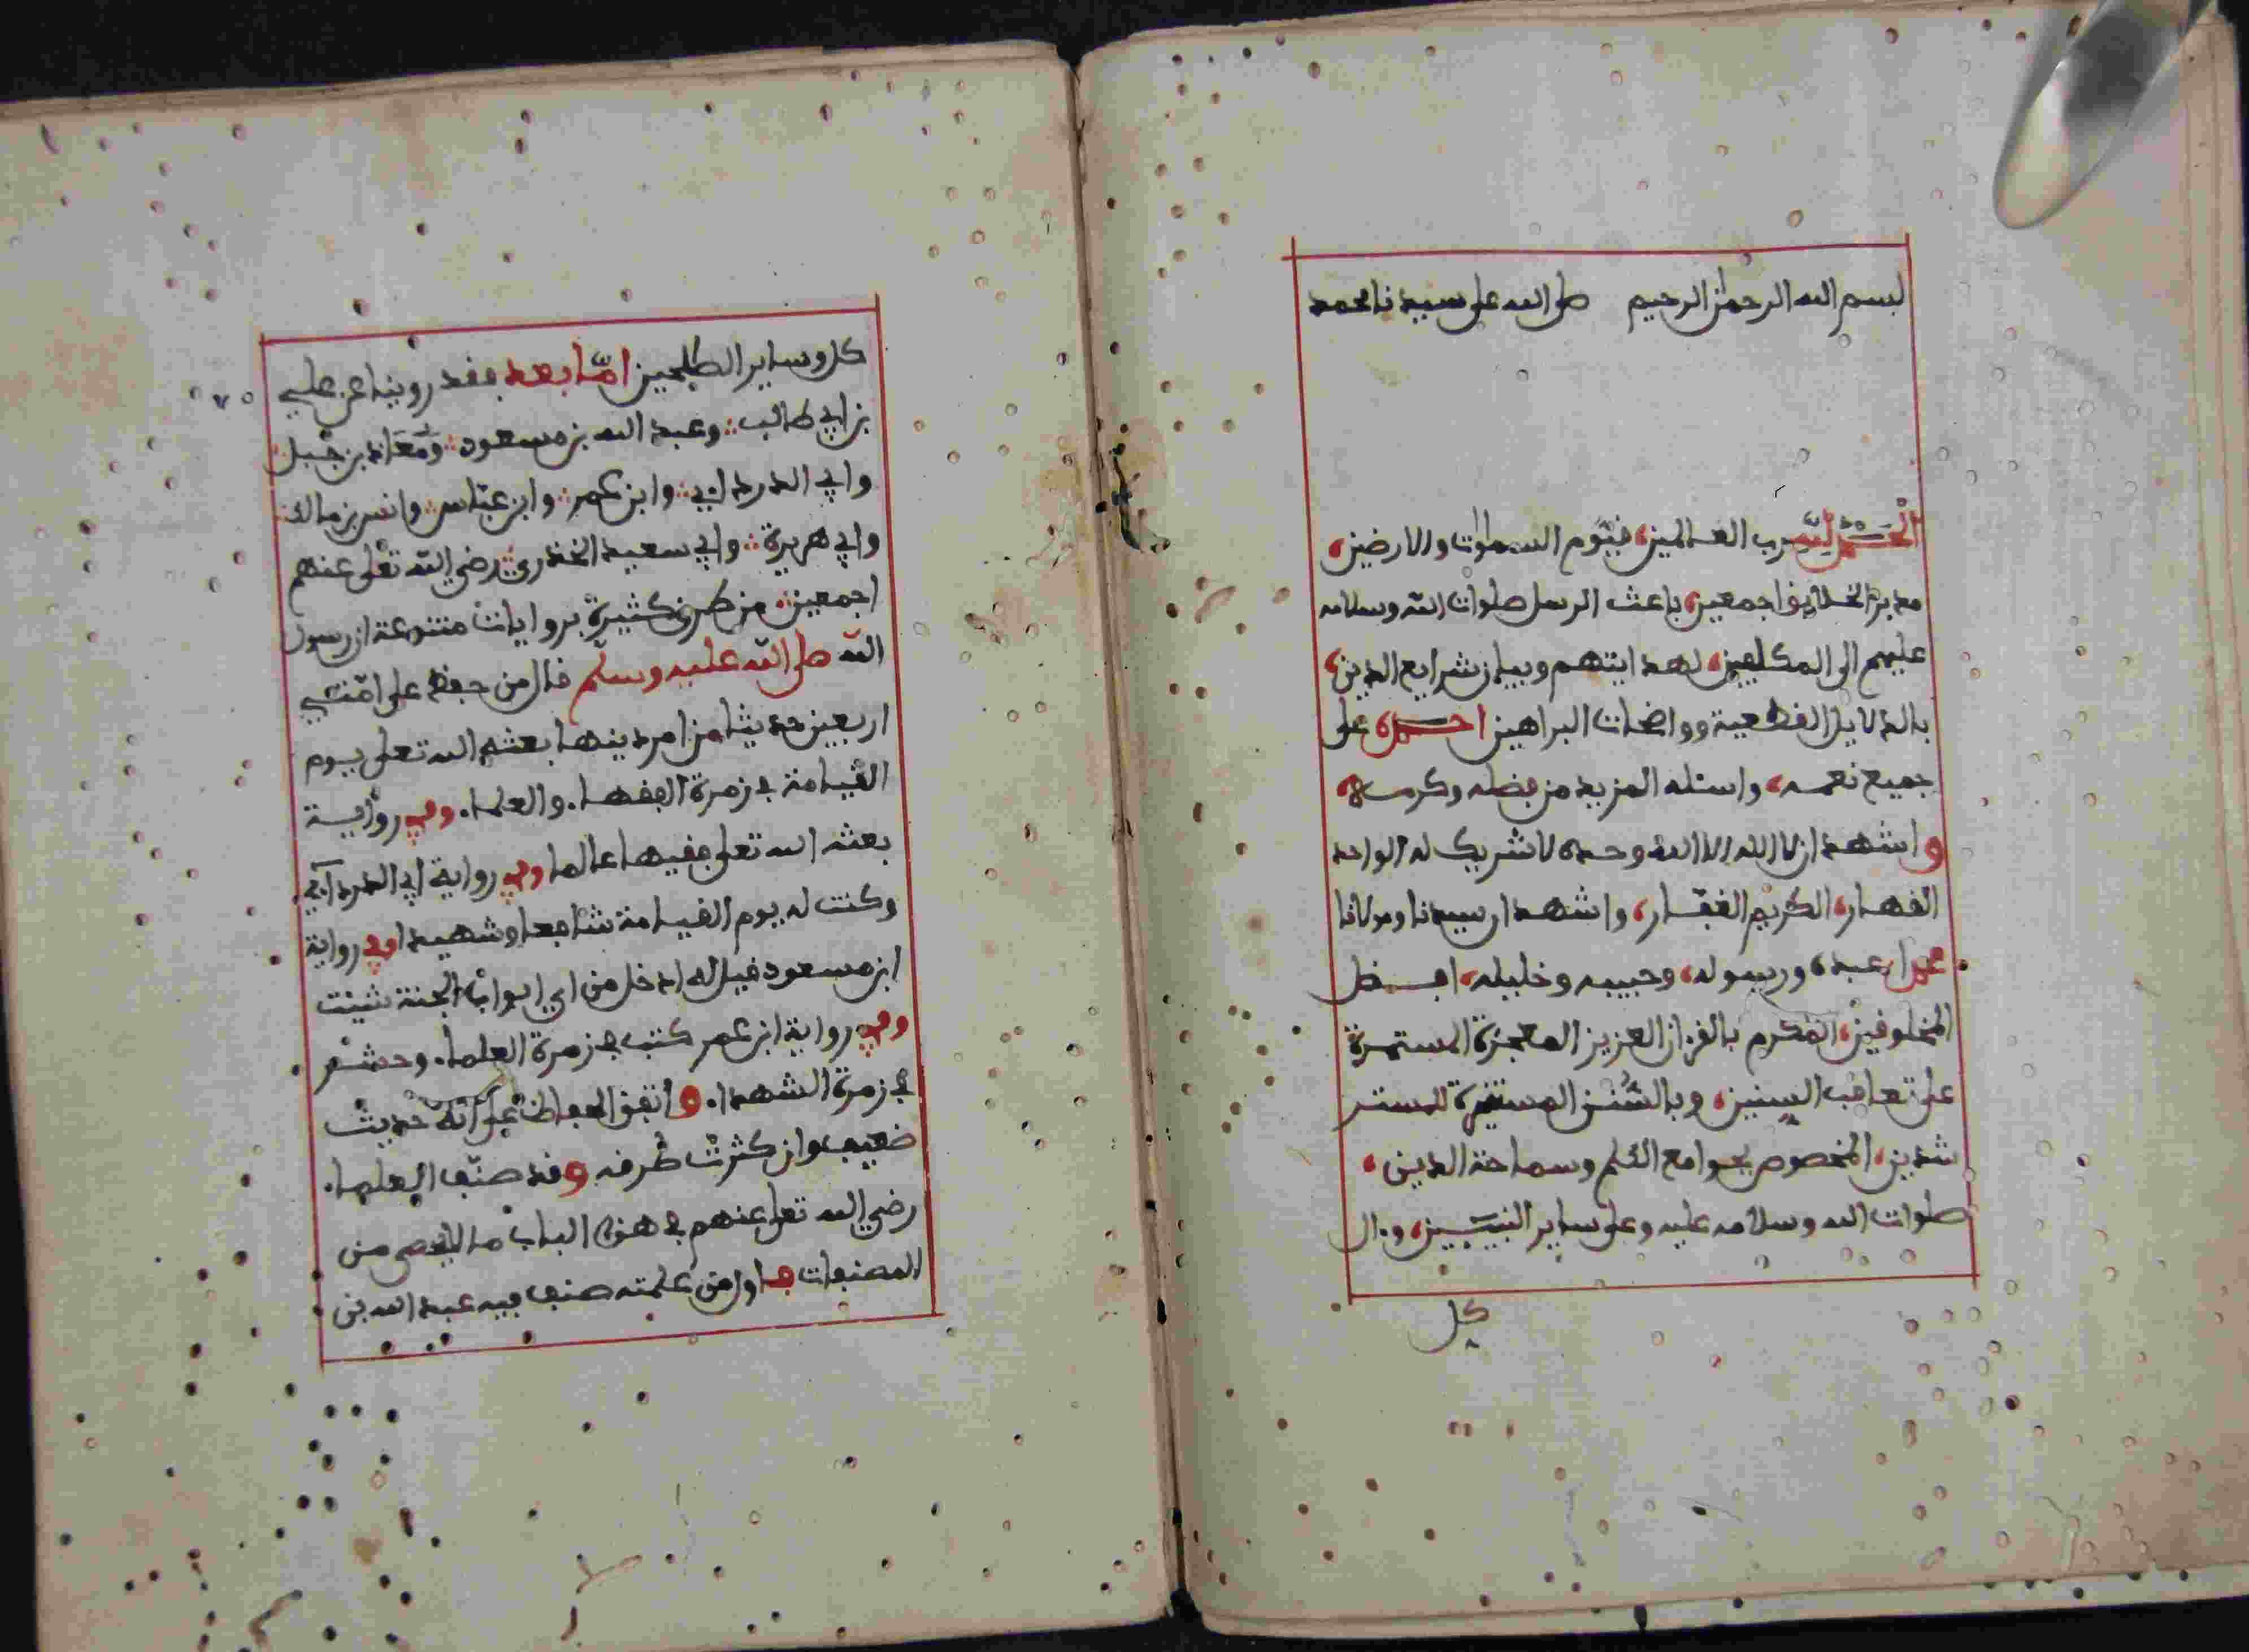 بسم الله الرحمن الرحيم صلى الله على سيدنا محمد
الحمد لله رب العالمين، قيّوم السموات والارضين،
مدبر الخلايق اجمعين، باعث الرسل صلوات الله وسلامه
عليهم الى المكلفين، لهدايتهم وبيان شرايع الدين،
بالدلايل القطعية وواضحات البراهين احمده على
جميع نعمه، واسئله المزيد من فضله وكرمه
واشهد ان لا اله الا الله وحده لا شريك له الواحد
القهار، الكريم الغفّار، واشهد ان سيدنا ومولانا
محمدا عبده، ورسوله، وحبيبه وخليله، افضل
المخلوقين، المكرم بالقرءان العزيز المعجزة المستمرة
على تعاقب السنين، وبالسُّنن المستنيرة للمستر
شدين، المخصوص بجوامع الكلم وسماحة الدين،
صلوات الله وسلامه عليه وعلى ساير النبيّين، وءال
كل
كل وساير الصلحين امّا بعد فقد روينا عن علي
بن ابي طالب وعبد الله بن مسعود ومُعَاذ بن جَبل
وابي الدرداء وابن عمر وابن عبّاس وانس بن مالك
وابي هريرة وابي سعيد الخدري رضي الله تعلى عنهم
اجمعين من طرق كثيرة بروايات متنوعة ان رسول
الله صلى الله عليه وسلم قال من حفظ على امّتي
اربعين حديثا من امر دينها بعثه الله تعلى يوم
القيامة في زمرة الفقهاء والعلماء وفي رواية
بعثه الله تعلى فقيها عالما وفي رواية ابي الدرداء
وكنت له يوم القيامة شافعا وشهيدا وفي رواية
ابن مسعود قيل له ادخل من اي ابواب الجنة شيت
وفي رواية ابن عمر كتب في زمرة العلماء وحشر
في زمرة الشهداء واتفق الحفاظ على انّه حديث
ضعيف وان كثرت طرقه وقد صنّف العلماء
رضي الله تعلى عنهم في هذا الباب ما لا يحصى من
المصنفات فاول من علمته صنف فيه عبد الله بن